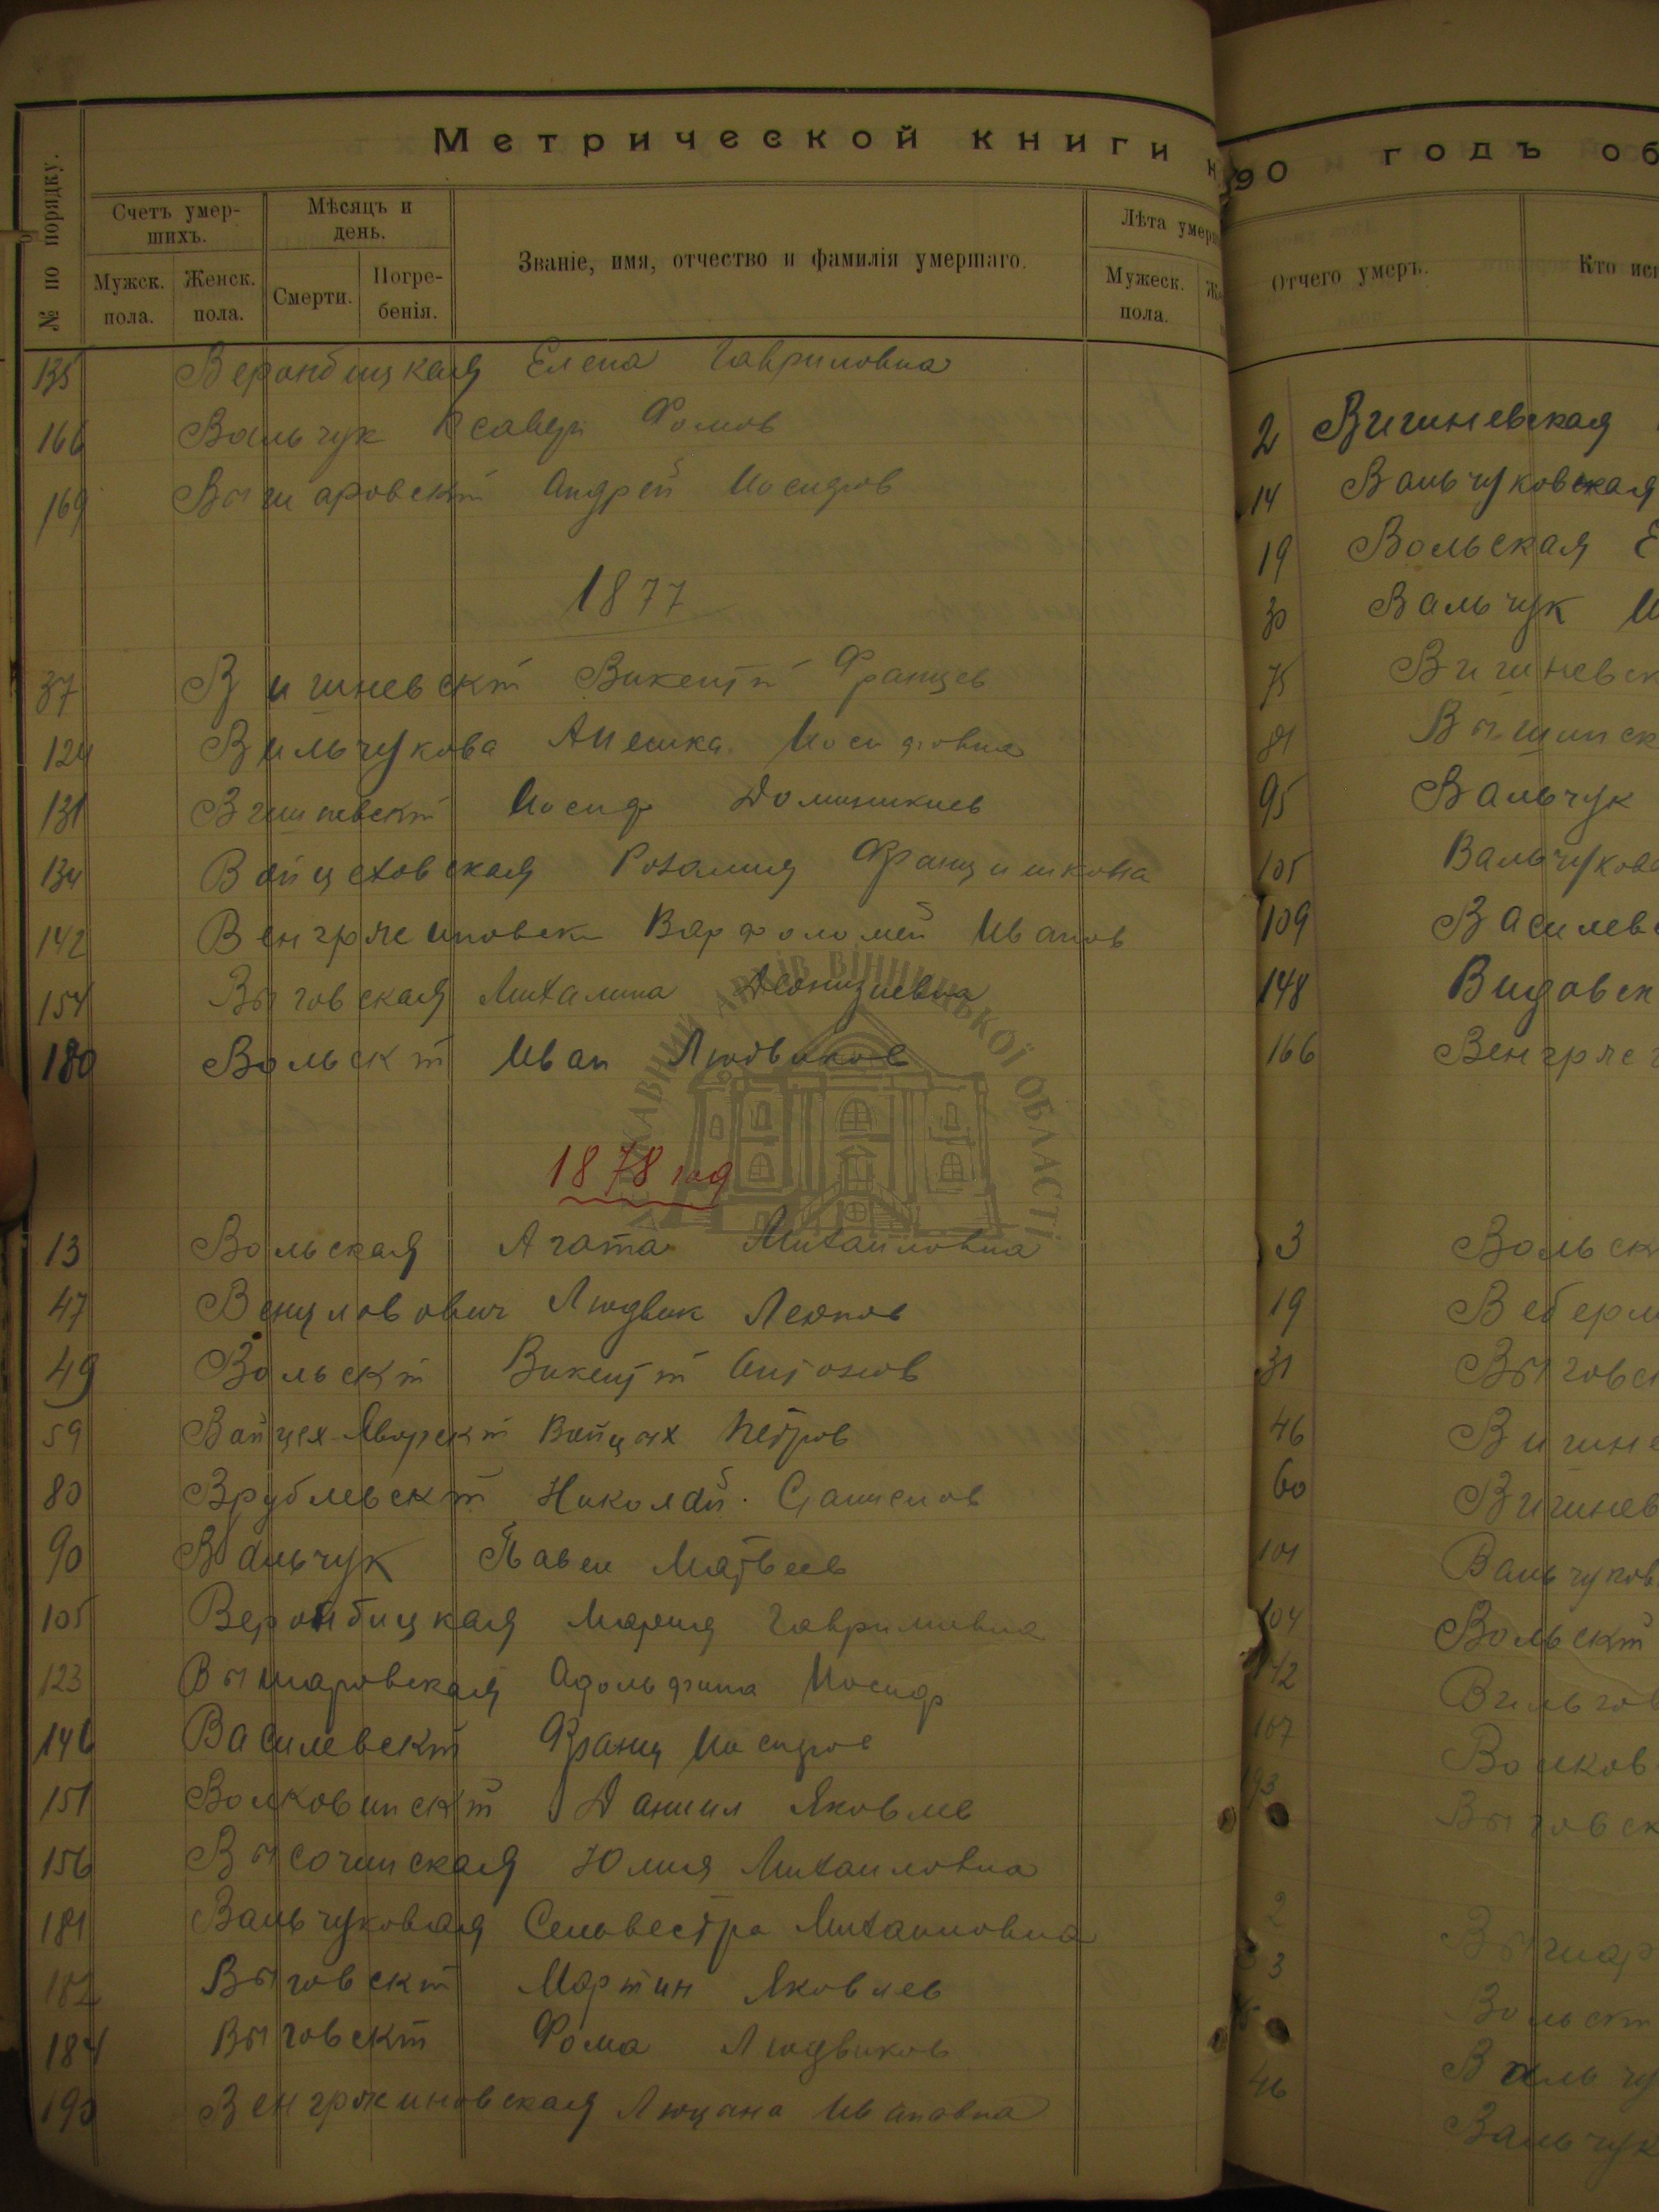 Метрической книги н
№ по порядку.
Счетъ умер-
шихъ.
Мѣсяцъ и
день.
Званіе, имя, отчество и фамилія умершаго.
Лѣта умерш
Мужск.
пола.
Женск.
пола.
Смерти.
Погре-
бенія.
Мужеск.
пола.
135 Веронбицкая Елена Гавриловна
166 Вальчук Ксавери Фомов
169 Вышаровскій Андрей Иосифов
1877
37 Вишневскій Викентій Францев
124 Вильчукова Анешка Иосифовна
131 Вишневскій Иосиф Доминикиев
134 Войцеховская Розалия Францишкова
142 Венгржеиновск Варфоломей Иванов
154 Выговская Михалина Деонизиевна
180 Вольскій Иван Людвиков
1878 год
13 Вольская Агата Михайловна
47 Венцлавович Людвик Леонов
49 Вольскій Викентій Антонов
59 Войцех-Яворскій Войцех Петров
80 Врублевскій Николай Станислов
90 Вальчук Павел Матвеев
105 Веронбицкая Мария Гавриловна
123 Вышаровская Адольфина Иосиф
146 Василевскій Франц Иосифов
151 Волковинскій Даниил Яковлев
156 Высочинская Юлия Михайловна
181 Вальчуковая Сельвестра Михайловна
182 Выговскій Мартин Яковлев
184 Выговскій Фома Людвиков
190 Венгржиновская Люцина Ивановна
ДЕРЖАВНИЙ АРХІВ ВІННИЦЬКОЇ ОБЛАСТІ
90 годъ об
Отчего умеръ.
Кто исп
2 Вишневская
14 Вальчуковская
19 Вольская Е
30 Вальчук И
75 Вишневск
81 Вышинск
95 Вальчук
105 Вальчукова
109 Василевс
148 Видавск
166 Венгрже
3 Вольск
19 Веберл
31 Выговск
46 Вишне
60 Вишнев
101 Вальчуков
104 Вольскій
142
107 Волков
193 Выговск
2 Вышар
3 Вольскій
Вальчу
46 Вальчук